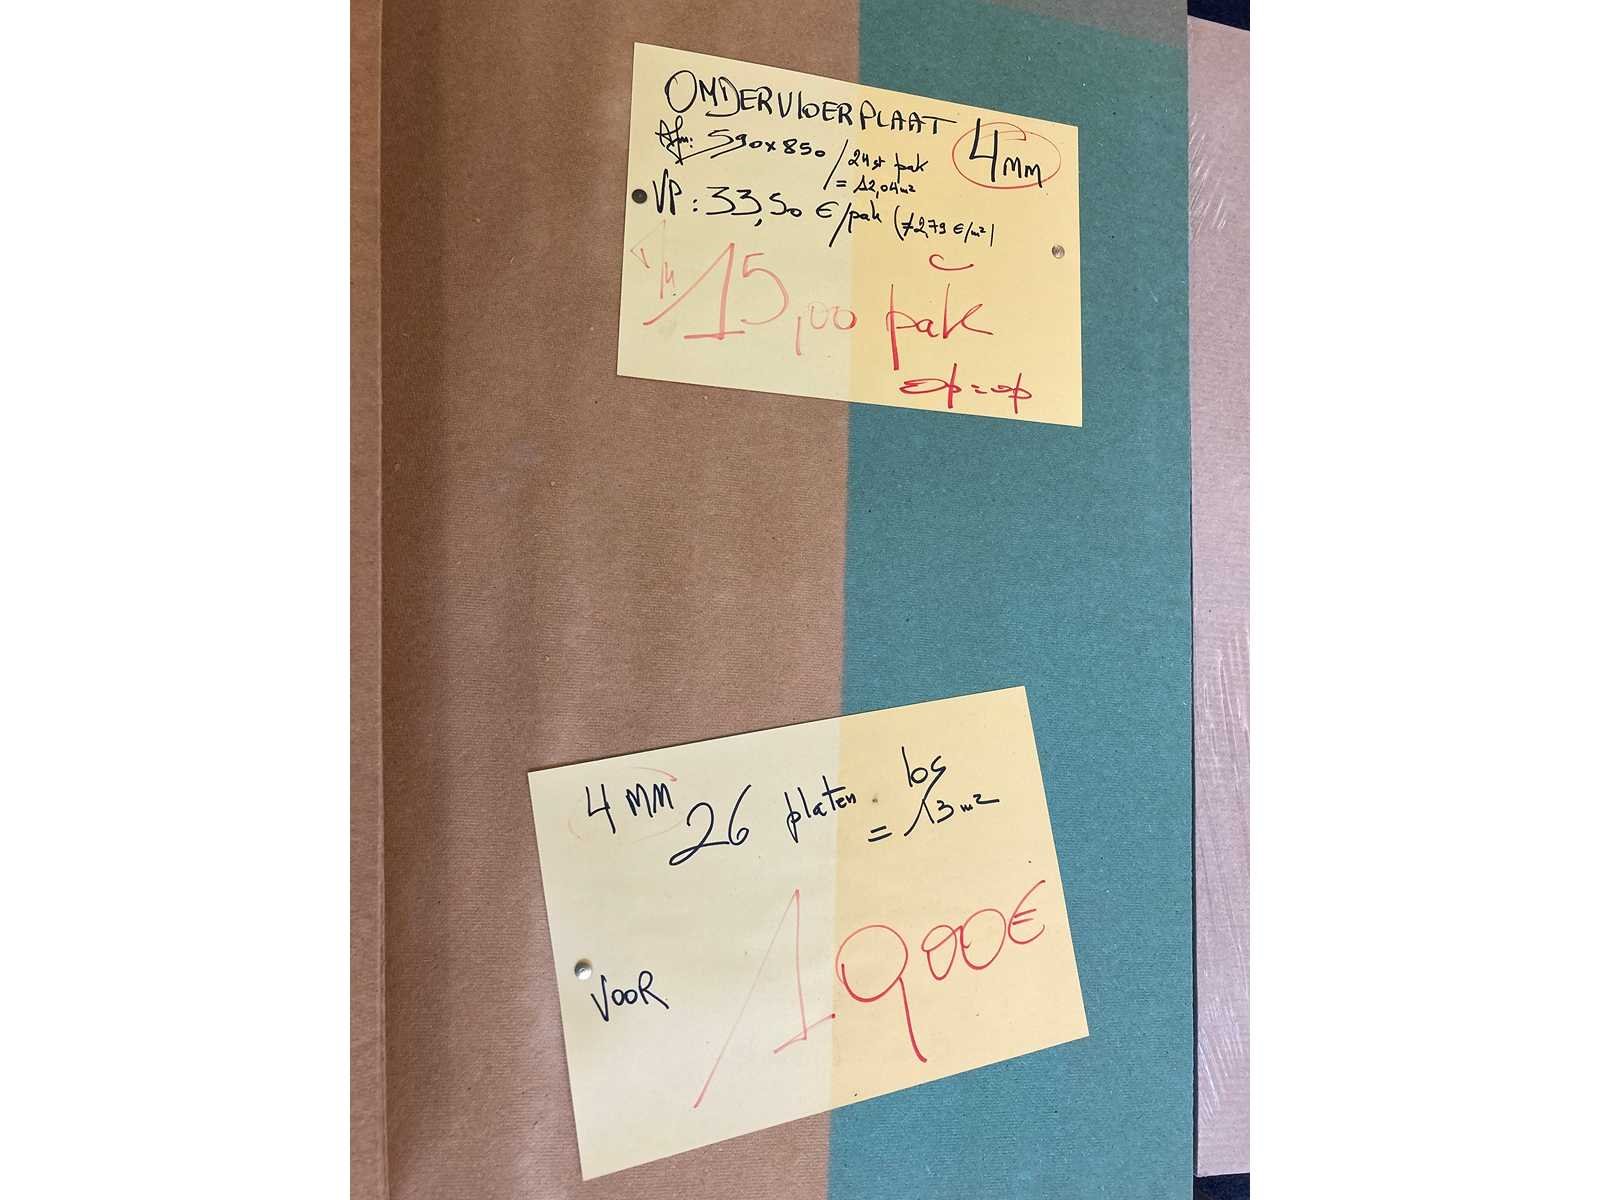 ONDERVLOERPLAAT 4MM
Afm: 590x850 / 24 st pak
= 12,04 m²
VP: 33,50 €/pak (≠2,79 €/m²)
15,00 pak
op=op
4 MM 26 platen los
= 13 m²
VOOR 19,00€